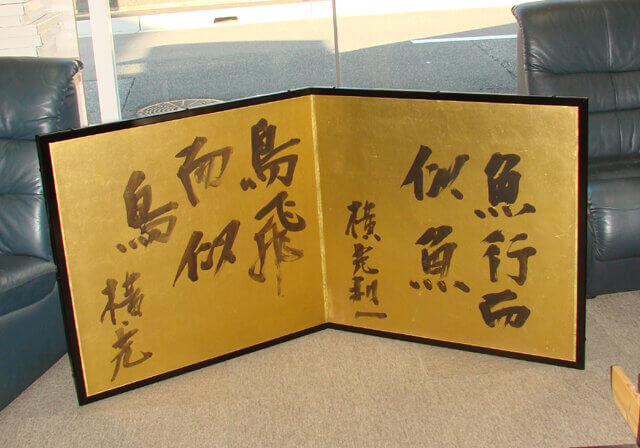 魚行而
似魚
横光利一
鳥飛
而似
鳥
横光